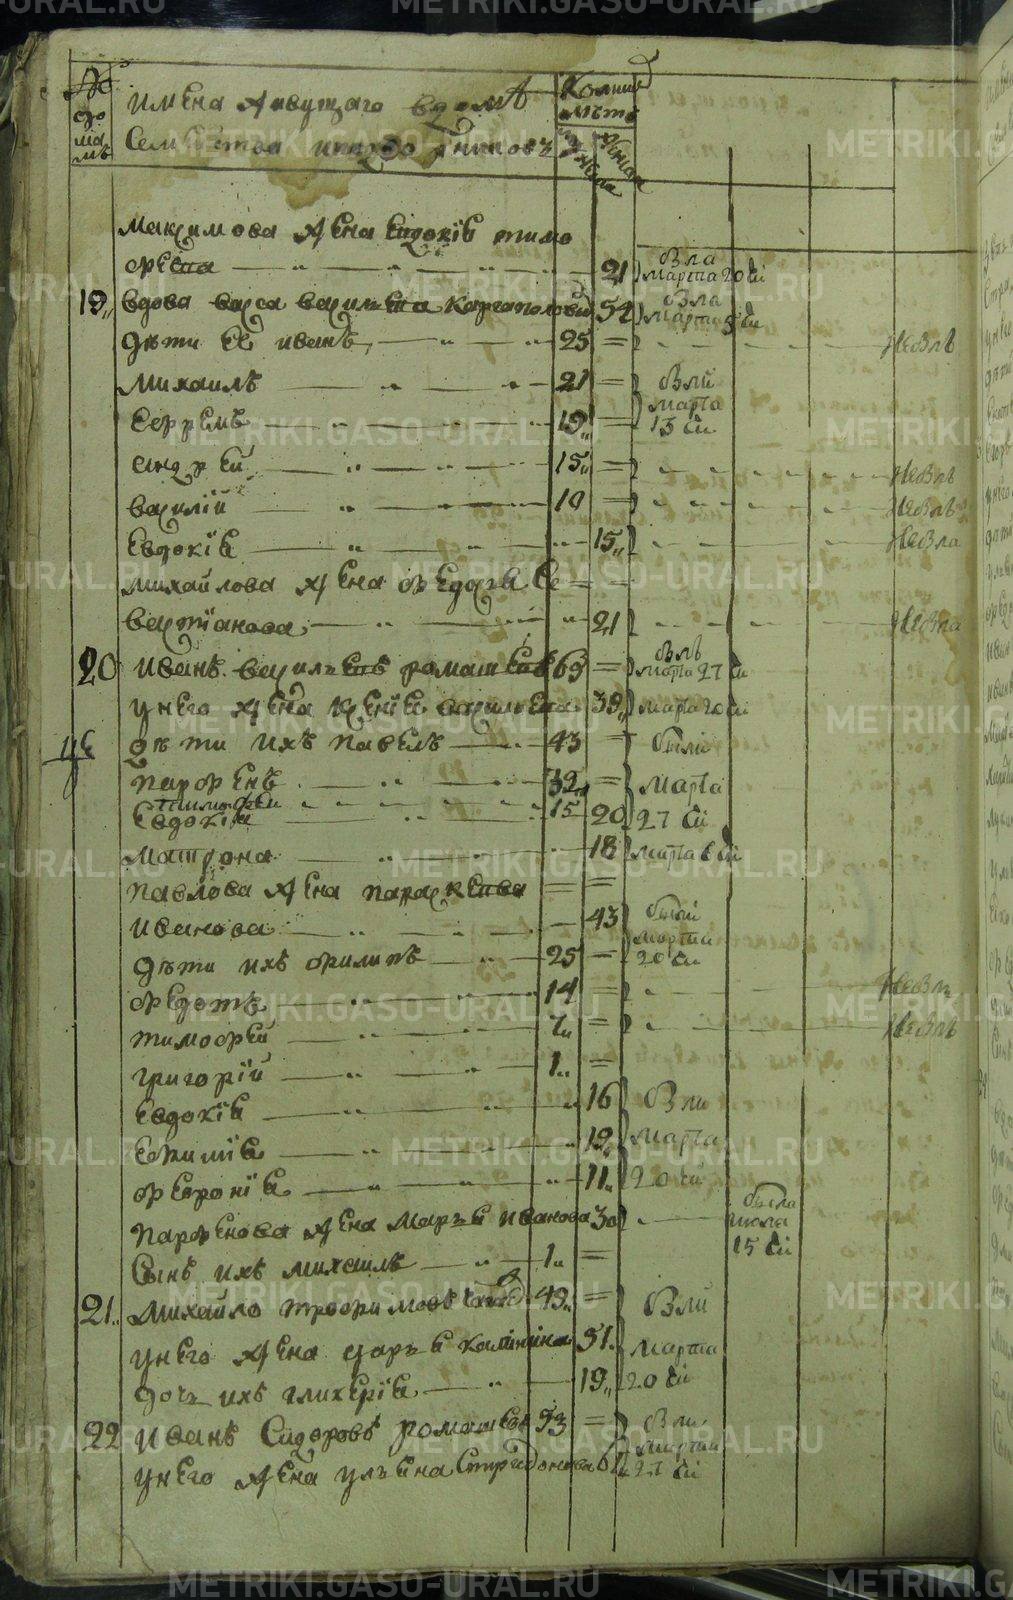 № домамъ
имена живущаго в дому
Коликихъ лѣтъ
Семейства
Мужеска Женска
максимова жена евдокіѣ тимо
ѳеева 21 была марта 20 чи
19 вдова васса васильева каргаполова 54 была марта
дѣти ее иванъ 25 не былъ
михаилъ 21 были
ефремъ 19 марта 13 чи
андрей 15 не былъ
василій 10 не былъ
евдокіѣ 15 не была
михайлова жена ѳедосьѣ се
вастіанова 21 не была
20 иванъ васильевъ ромашевъ 69 былъ марта 27 чи
у него жена ксеніѣ васильева 39 марта 20 чи
дѣти ихъ павелъ 43 были
46
парфенъ 32 марта
тимофей 15
евдокіѣ 20 27 чи
матрона 18 марта 6 чи
павлова жена параскева
иванова 43 были марта 20 чи
дѣти ихъ филипъ 25
федотъ 14 не былъ
тимофей 7 не былъ
григорій 1
евдокіѣ 16 были
еѳиміѣ 12 марта
февроніѣ 11 20 чи
парфенова жена марьѣ иванова 30 была июля 15 чи
сынъ ихъ михаилъ 1
21 михайло трофимовъ 49 были
у него жена дарьѣ калинина 51 марта
дочь ихъ гликеріѣ 19 20 чи
22 иванъ сидоровъ ромашевъ 53 были марта
у него жена ульѣна спиридонова 61 27 чи
METRIKI.GASO-URAL.RU